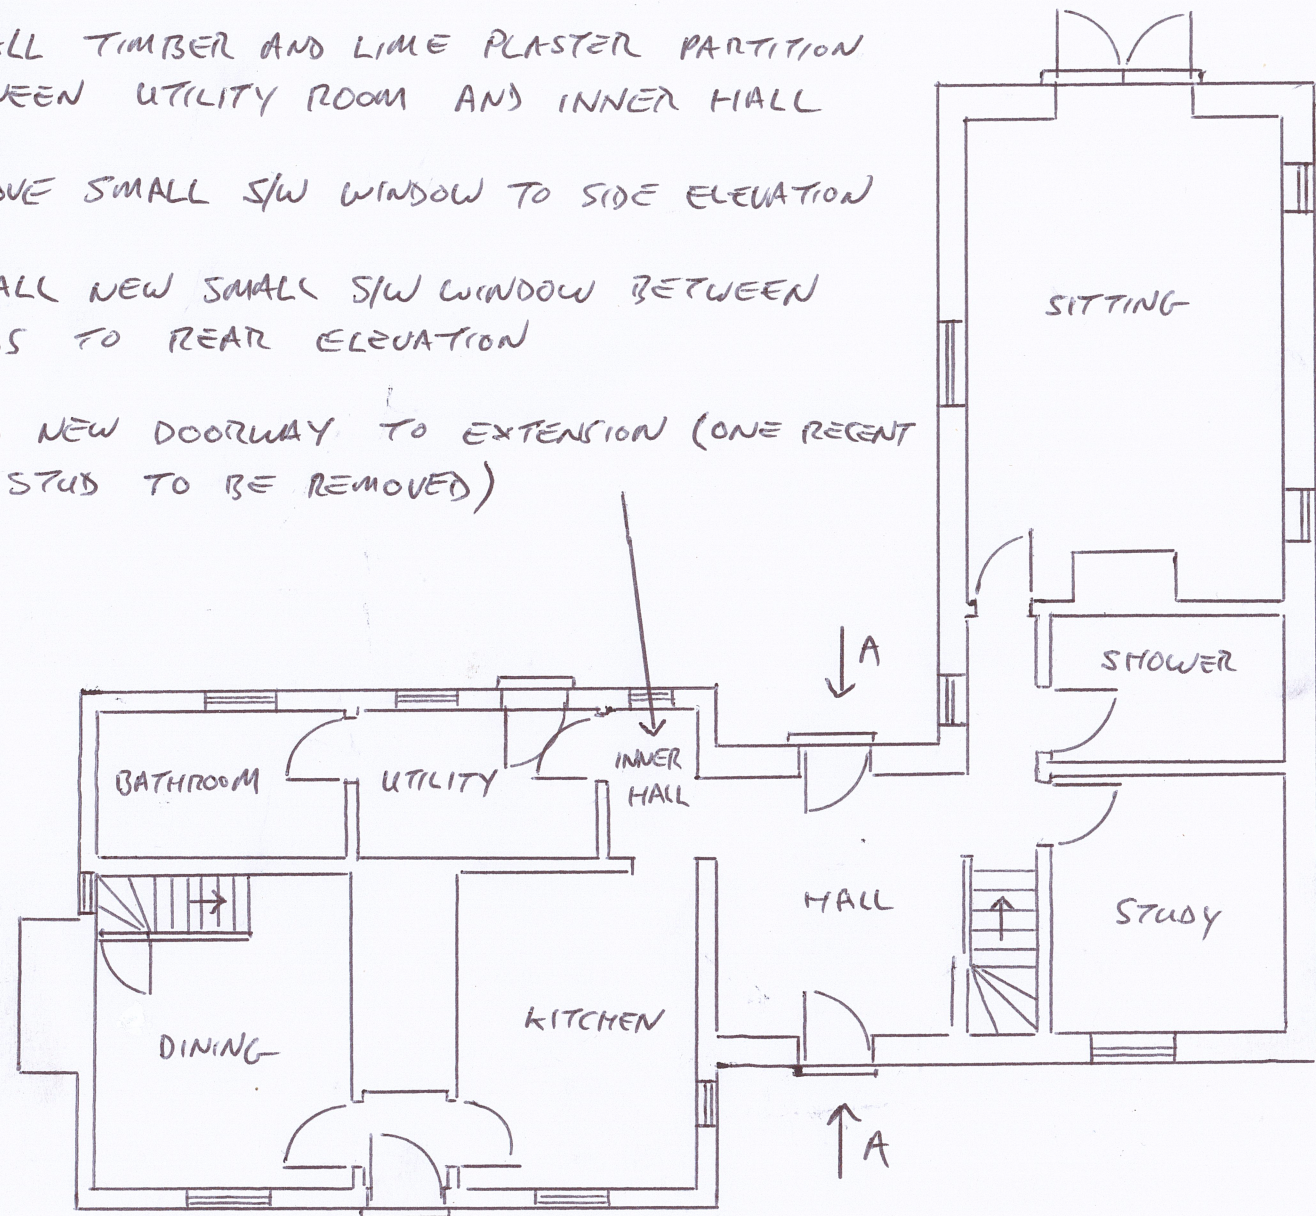 ALL TIMBER AND LIME PLASTER PARTITION
WEEN UTILITY ROOM AND INNER HALL
OVE SMALL S/W WINDOW TO SIDE ELEVATION
ALL NEW SMALL S/W WINDOW BETWEEN
S TO REAR ELEVATION
NEW DOORWAY TO EXTENSION (ONE RECENT
STUD TO BE REMOVED)
SITTING
A
SHOWER
INNER
HALL
BATHROOM
UTILITY
HALL
STUDY
KITCHEN
DINING
A